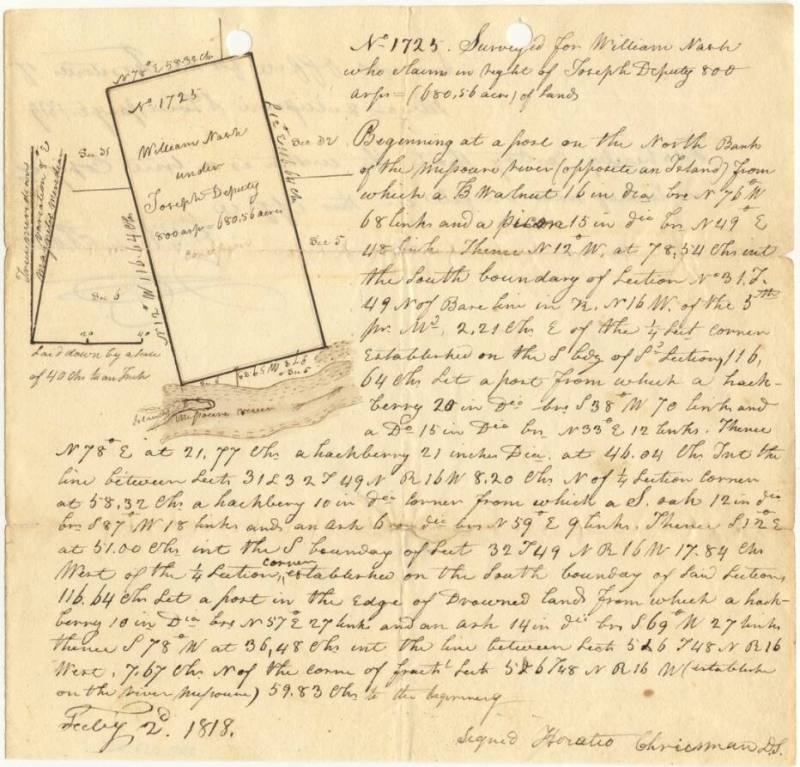 No 1725. Surveyed for William Nash
who claims in right of Joseph Deputy 800
arps = (680,56 acres) of lands
Beginning at a post on the North Bank
of the Missouri river (opposite an Island) from
which a B Walnut 16 in dia brs N 76° W
68 links and a 15 in dia brs N 49° E
48 links Thence N 12° W, at 78,54 Chs int
the South boundary of Section No 31. T.
49 N of Base line in R. N 16 W. of the 5th
pr. Md, 2,21 Chs E of the 1/4 Sect corner
Established on the S bdy of Sd Section, 116,
64 Chs Set a post from which a hack-
berry 20 in Dia brs S 38° W 70 links and
a Do 15 in Dia brs N 33° E 12 links. Thence
N 78° E at 21,77 Chs a hackberry 21 inches Dia. at 46.04 Chs Int the
line between Sects 31 & 32 T 49 N R 16 W 8.20 Chs N of 1/4 Section corner
at 58,32 Chs a hackbery 10 in dia corner from which a S. oak 12 in dia
brs S 87° W 18 links and an ash 6 in dia brs N 59° E 9 links. Thence S 12° E
at 51.00 Chs int the S bounday of Sect 32 T 49 N R 16 W 17.84 Chs
West of the 1/4 Section corner established on the South bounday of Said Section
116.64 Chs Set a post in the Edge of Drowned lands from which a hack-
berry 10 in Dia brs N 57° E 27 links and an ash 14 in dia brs S 69° W 27 links
thence S 78° W at 36,48 Chs int the line between Sects 5 & 6 T 48 N R 16
West, 7.67 Chs N of the corne of fractl Sects 5 & 6 T 48 N R 16 W (establishe
on the river Missouri) 59.83 Chs to the beginning
Feby 2d. 1818.
Signed Horatio Chriesman D.S.
N 78° E 58.32 Ch
No 1725
William Nash
under
Joseph Deputy
800 arps = 680.56 acres
S 12° E 116.64 Ch
N 12° W 116.64 Ch
Sec 31
Sec 32
Sec 5
Sec 6
True meridian
Variation 8° E
Magnetic meridian
20
40
Laid down by a scale
of 40 Chs to an Inch
Missouri river